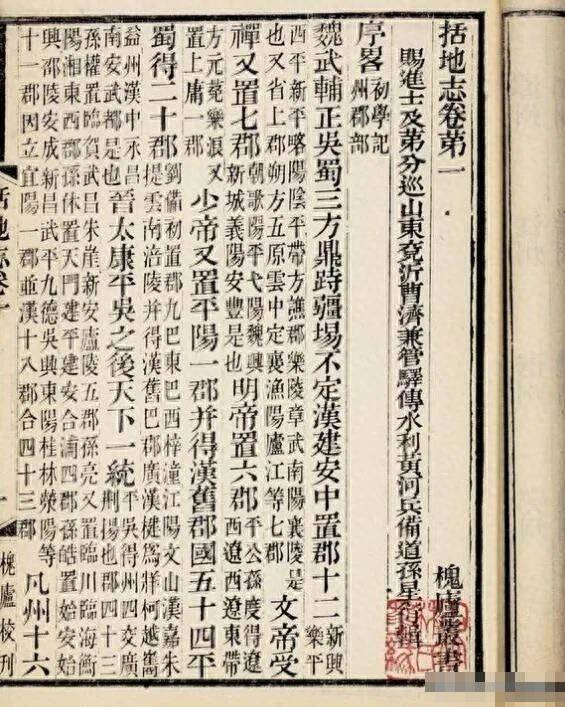 括地志卷苐一 槐廬叢書
賜進士及苐分巡山東兗沂曹濟兼管驛傳水利黃河兵備道孫星衍輯
序畧 初學記州郡部
魏武輔正吳蜀三方鼎跱疆場不定漢建安中置郡十二 新興樂平
西平新平略陽陰平帶方譙郡樂陵章武南陽襄陵是也又省上郡朔方五原雲中定襄漁陽廬江等七郡 文帝受
禪又置七郡 朝歌陽平弋陽魏興新城義陽安豐是也 明帝置六郡 平公孫度得遼西遼西遼東帶
方元菟樂浪又置上庸一郡 少帝又置平陽一郡并得漢舊郡國五十四平
蜀得二十郡 劉備初置郡九巴東巴西梓潼江陽文山漢嘉朱提雲南涪陵并得漢舊巴郡廣漢犍爲牂柯越巂
益州漢中永昌南安武都是也 晉太康平吳之後天下一統 平吳得州四交廣荆揚也郡四十三
孫權置臨賀武昌朱崖新安廬陵五郡孫亮又置臨川臨海衡陽湘東西郡孫休置天門建平建安合浦四郡孫皓置始安始
興邵陵安成新昌武平九德吳興東陽桂林滎陽等十一郡因立宜陽一郡並漢十八郡合四十三郡 凡州十六
括地志卷一 一 槐廬校刊